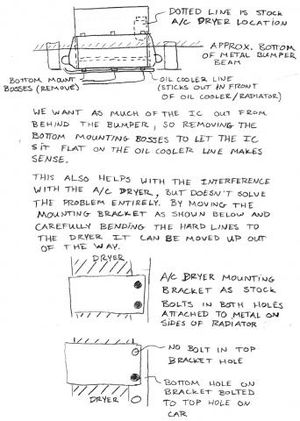 DOTTED LINE IS STOCK
A/C DRYER LOCATION
APPROX. BOTTOM
OF METAL BUMPER
BEAM
BOTTOM MOUNT
BOSSES (REMOVE)
OIL COOLER LINE
(STICKS OUT IN FRONT
OF OIL COOLER/RADIATOR)
WE WANT AS MUCH OF THE IC OUT FROM
BEHIND THE BUMPER, SO REMOVING THE
BOTTOM MOUNTING BOSSES TO LET THE IC
SIT FLAT ON THE OIL COOLER LINE MAKES
SENSE.
THIS ALSO HELPS WITH THE INTERFERENCE
WITH THE A/C DRYER, BUT DOESN'T SOLVE
THE PROBLEM ENTIRELY. BY MOVING THE
MOUNTING BRACKET AS SHOWN BELOW AND
CAREFULLY BENDING THE HARD LINES TO
THE DRYER IT CAN BE MOVED UP OUT
OF THE WAY.
DRYER
A/C DRYER MOUNTING
BRACKET AS STOCK
BOLTS IN BOTH HOLES
ATTACHED TO METAL ON
SIDES OF RADIATOR
NO BOLT IN TOP
BRACKET HOLE
BOTTOM HOLE ON
BRACKET BOLTED
TO TOP HOLE ON
CAR
DRYER